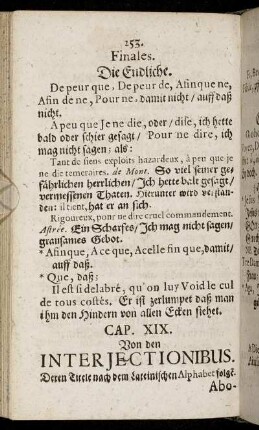 153.
Finales.
Die Endliche.
De peur que, De peur de, Afin que ne,
Afin de ne, Pour ne, damit nicht/ auff daß
nicht.
A peu que Je ne die, oder/ dise, ich hette
bald oder schier gesagt/ Pour ne dire, ich
mag nicht sagen; als:
Taut de siens exploits hazardeux, à peu que je
ne die temeraires. de Mont. So viel seiner ge-
fährlichen herrlichen/ Jch hette bale gesagt/
vermessenen Thaten. Hierunter wird verstan-
den: il tient, hat er an sich.
Rigoureux, pour ne dire cruel commandement.
Astrée. Ein Scharfes/ Jch mag nicht sagen/
grausames Gebot.
* Afinque, A ce que, A celle fin que, damit/
auff daß.
* Que, daß;
Il est si delabré, qu'on luy Void le cul
de tous costés. Er ist zerlumpet daß man
ihm den Hindern von allen Ecken siehet.
CAP. XIX.
Von den
INTERJECTIONIBUS.
Deren Titele nach dem Lateinischen Alphabet folgē.
Abo-